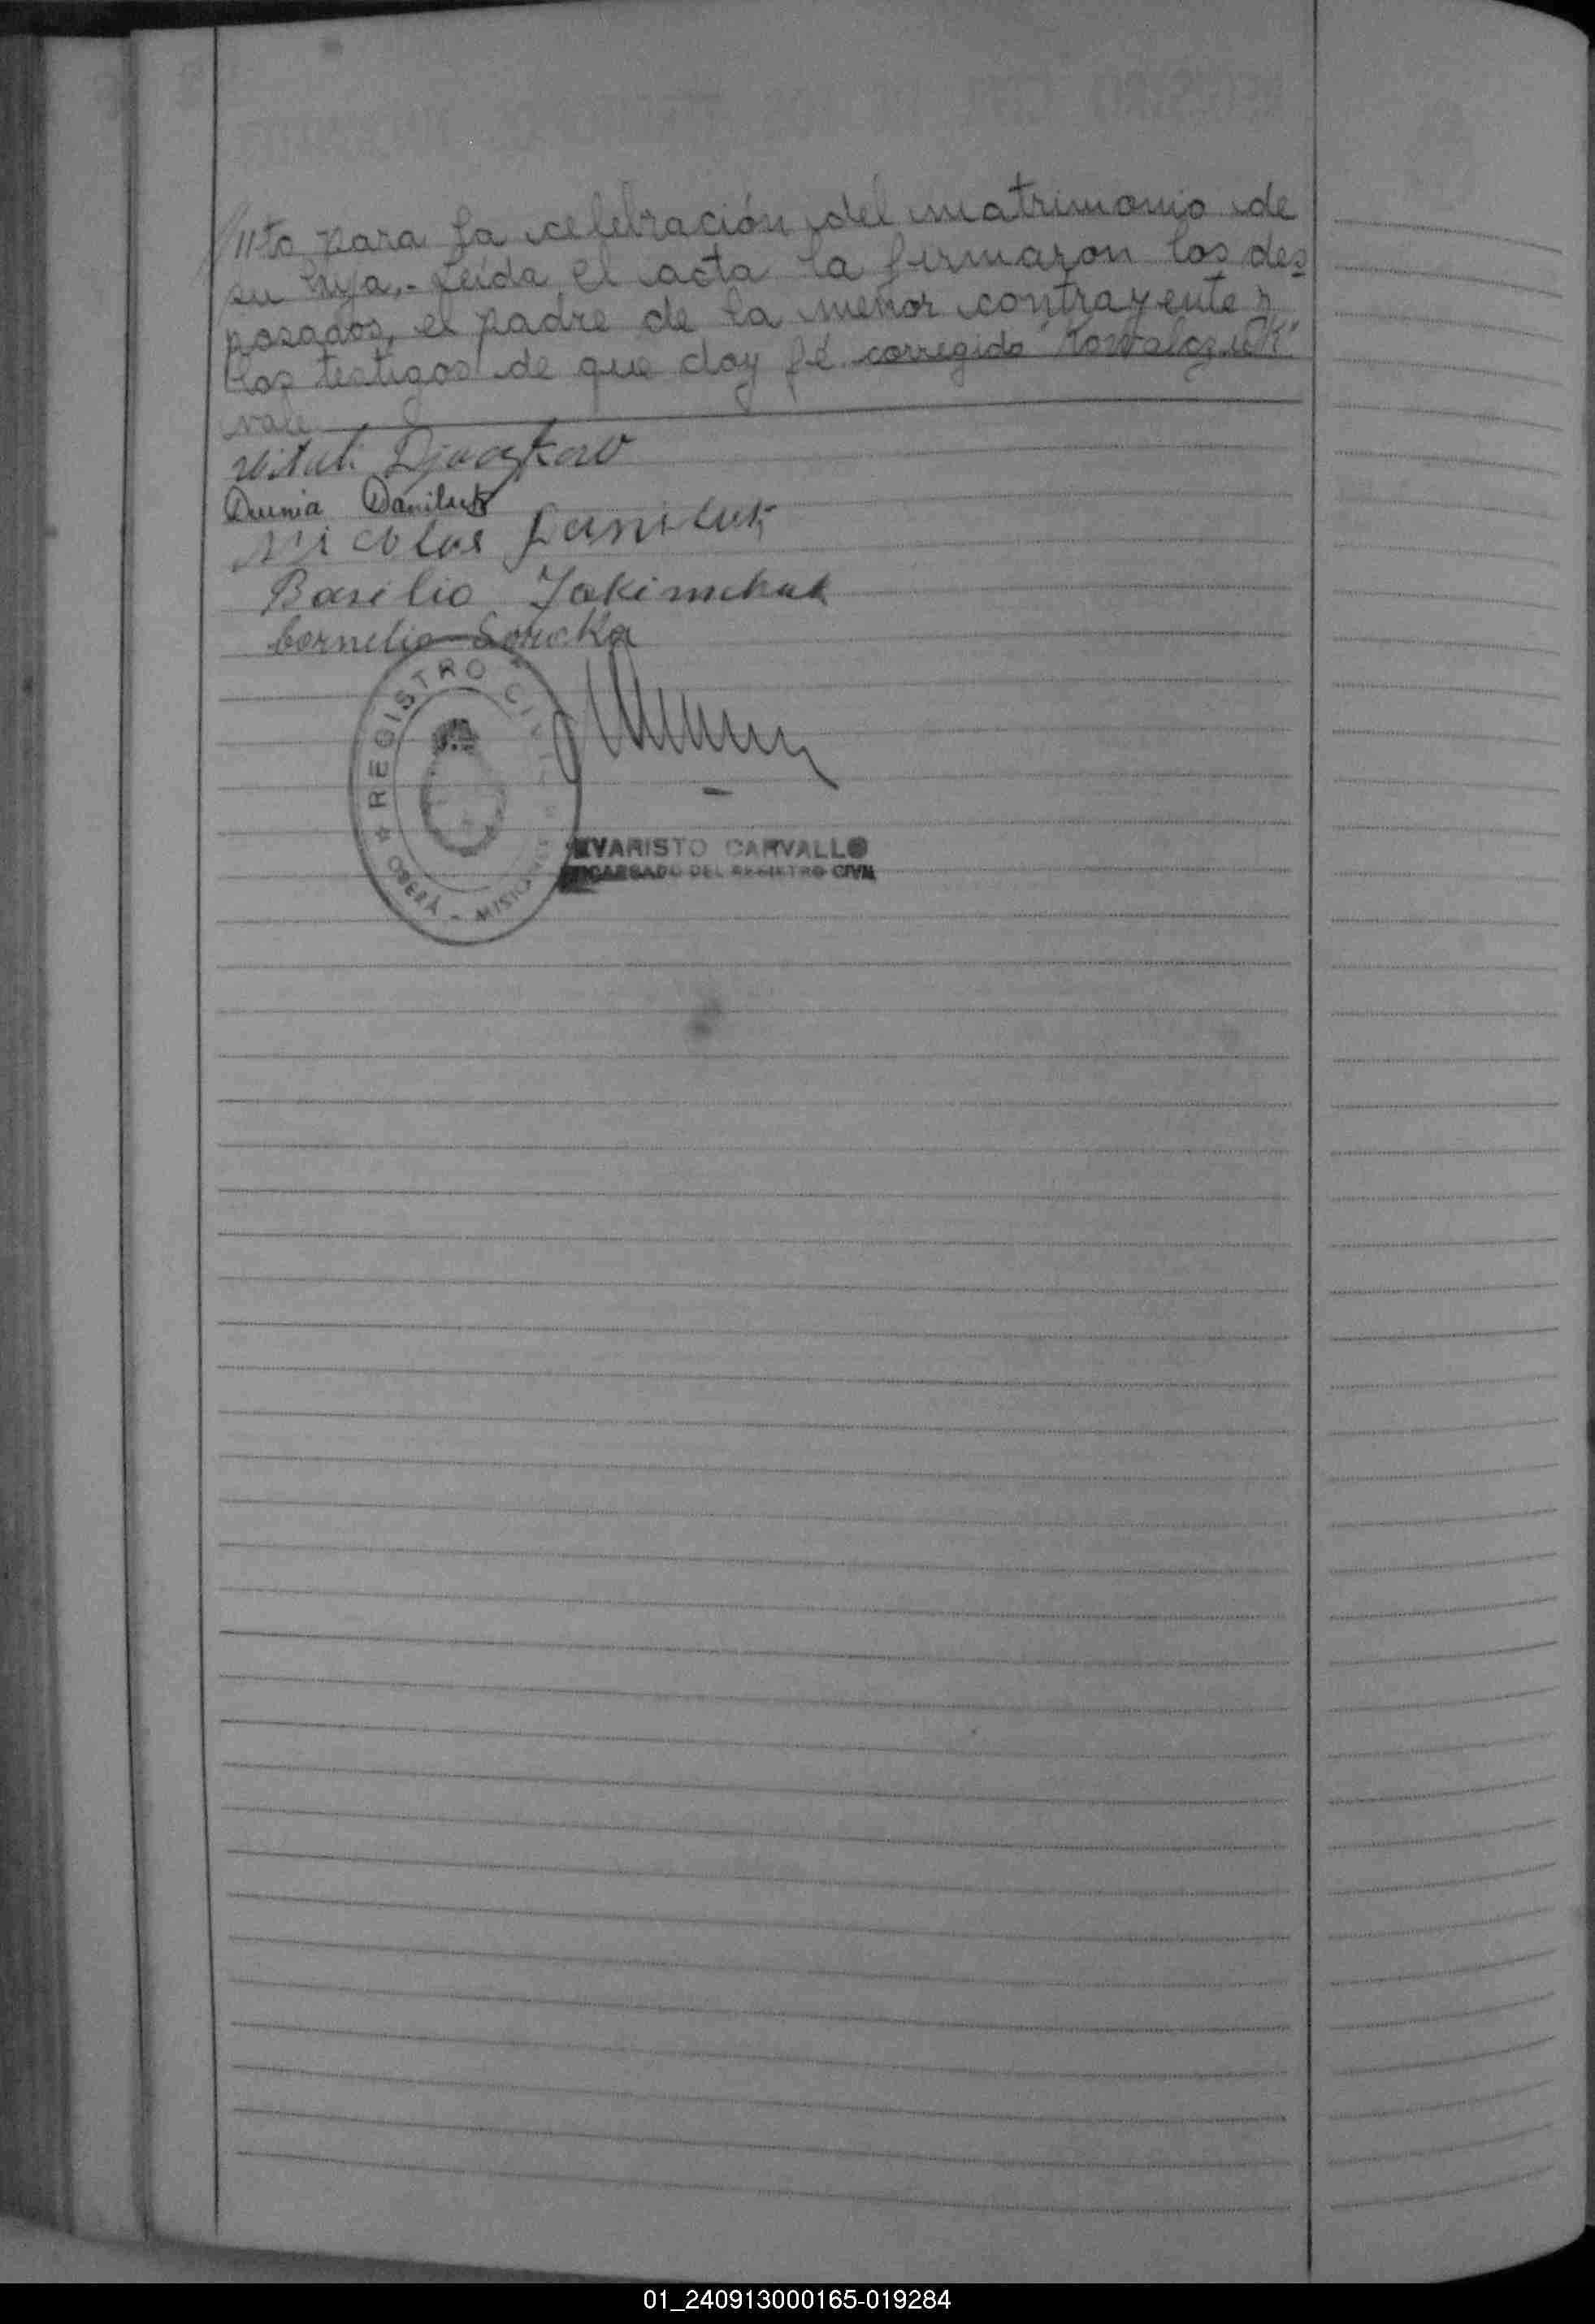 //to para la celebración del matrimonio de
su hija.- Leída el acta la firmaron los des
posados, el padre de la menor contrayente y
los testigos de que doy fé. corregido "Kowalczuk"
vale
Dunia Daniluk
Nicolas Daniluk
Basilio Jakimchuk
Cornelio
REGISTRO CIVIL
OBERÁ - MISIONES
EVARISTO CARVALLO
ENCARGADO DEL REGISTRO CIVIL
01_240913000165-019284